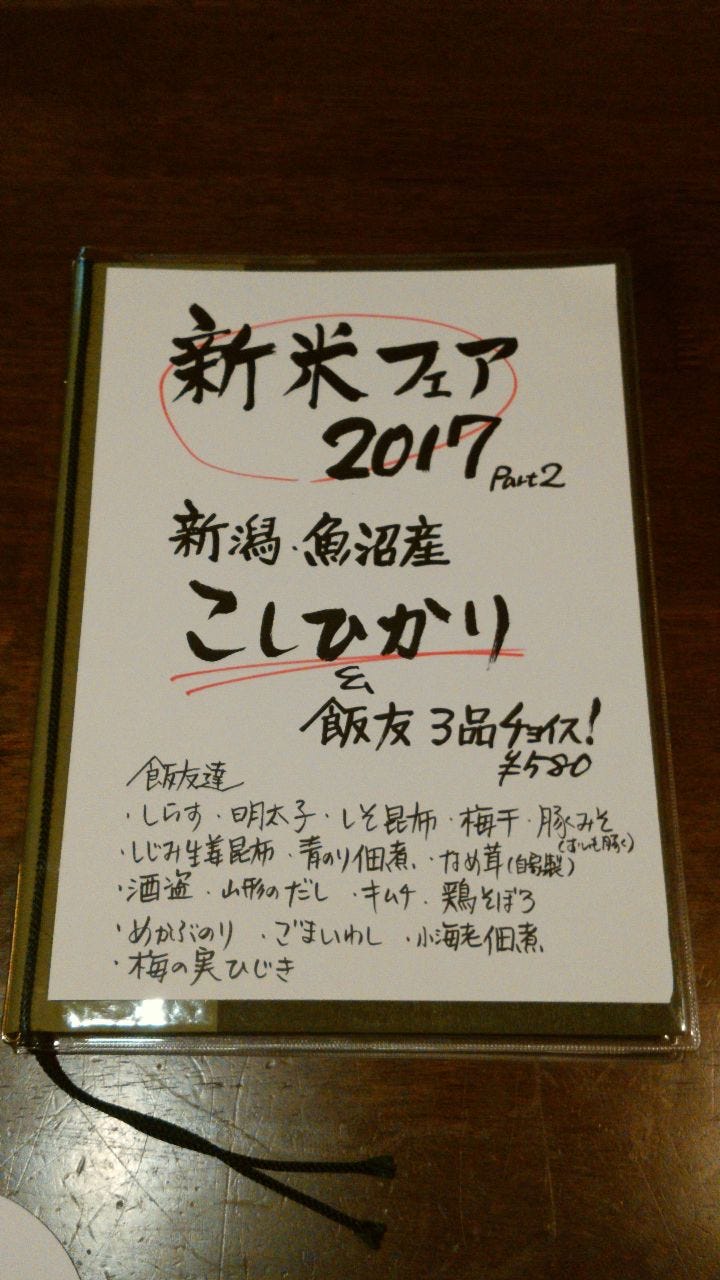 新米フェア
2017 Part2
新潟・魚沼産
こしひかり
&
飯友 3品チョイス!
¥580
飯友達
・しらす ・明太子 ・しそ昆布 ・梅干 ・豚みそ
・しじみ生姜昆布 ・青のり佃煮 ・なめ茸(自家製)
・酒盗 ・山形のだし ・キムチ ・鶏そぼろ
・めかぶのり ・ごまいわし ・小海老佃煮
・梅の実ひじき